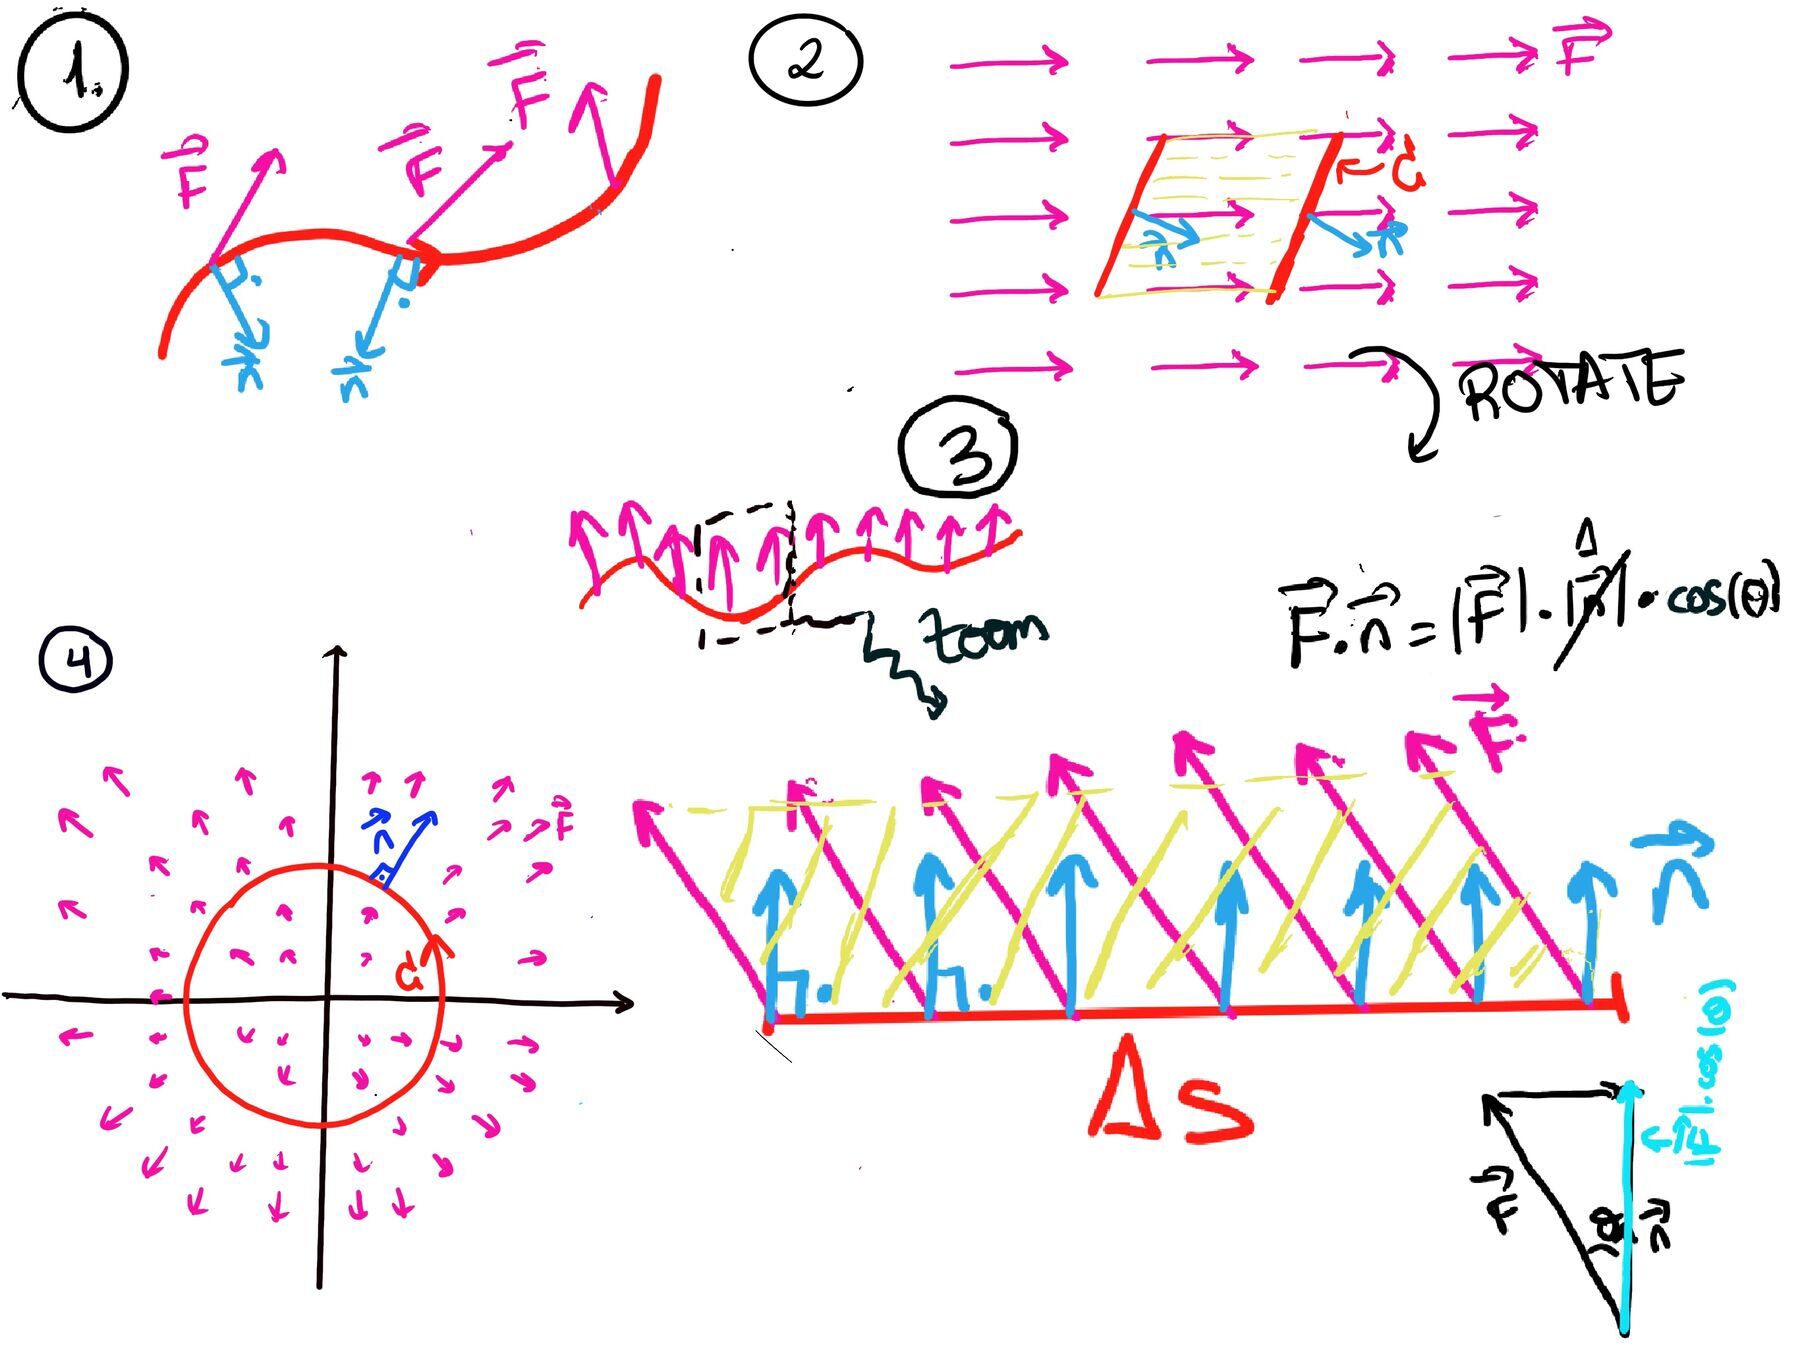 1.
F⃗
F⃗
F⃗
n⃗
n⃗
2
F⃗
C⃗
n⃗
n⃗
ROTATE
3
zoom
1
F⃗·n⃗=|F⃗|·|n⃗|·cos(θ)
4
n⃗
F⃗
C⃗
F⃗
n⃗
Δs
|F⃗|·cos(θ)
F⃗
θ
n⃗